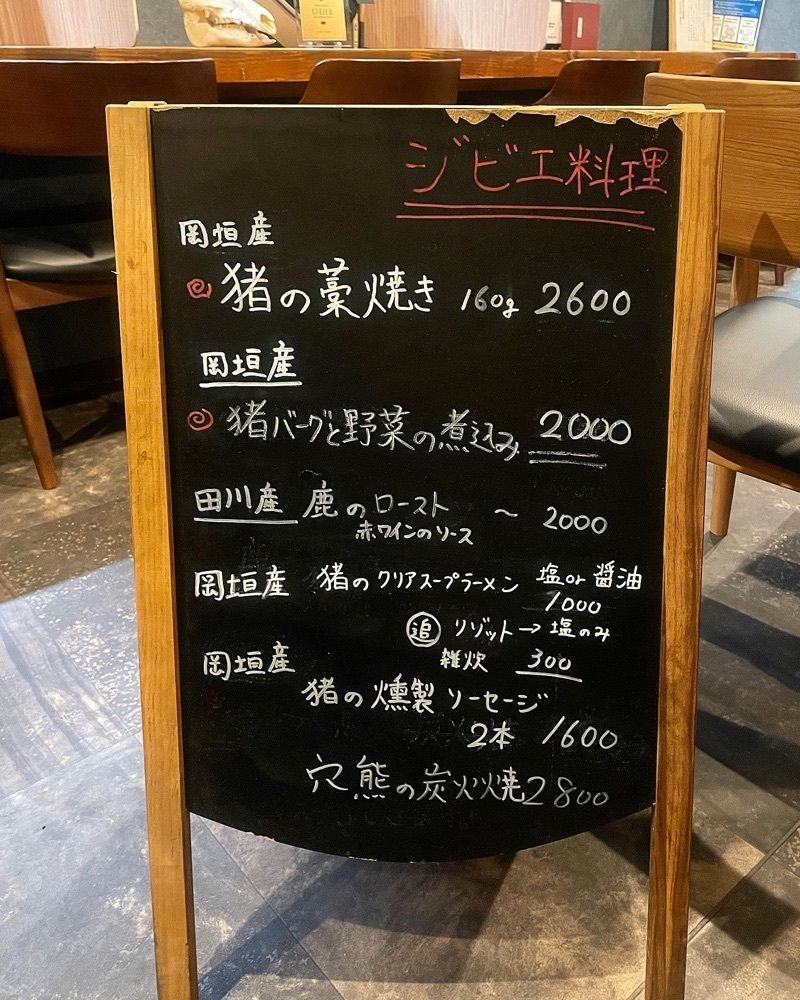 ジビエ料理
岡垣産
猪の藁焼き 160g 2600
岡垣産
猪バーグと野菜の煮込み 2000
田川産 鹿のロースト ～ 2000
赤ワインのソース
岡垣産 猪のクリアスープラーメン 塩or醤油
1000
追 リゾット→塩のみ
雑炊 300
岡垣産
猪の燻製ソーセージ
2本 1600
穴熊の炭火焼 2800